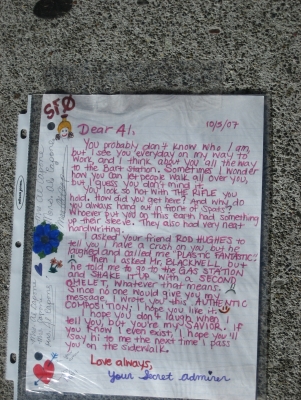 SFØ
10/5/07
Dear Al,
You probably don't know who I am,
but I see you everyday on my way to
work, and I think about you all the way
to the Bart station. Sometimes I wonder
how you can let people walk all over you,
but I guess you don't mind it.
You look so hot with THE RIFLE you
held. How did you get here? And why do
you always hang out in front of Spats?
Whoever put you on this earth had something
up their sleeve. They also had very neat
handwriting.
I asked your friend ROD HUGHES to
tell you I have a crush on you, but he
laughed and called me "PLASTIC FANTASTIC".
Then I asked Mr. BLACKWELL, but
he told me to go to the GAS STATION
and SHAKE IT UP WITH A SECOND
OMELET, whatever that means.
Since no one would give you my
message, I wrote you this AUTHENTIC
COMPOSITION; I hope you like it.
I hope you don't laugh when I
tell you, but you're my SAVIOR. If
you know I even exist, I hope you'll
say hi to me the next time I pass
you on the sidewalk.
Love always,
Your Secret admirer